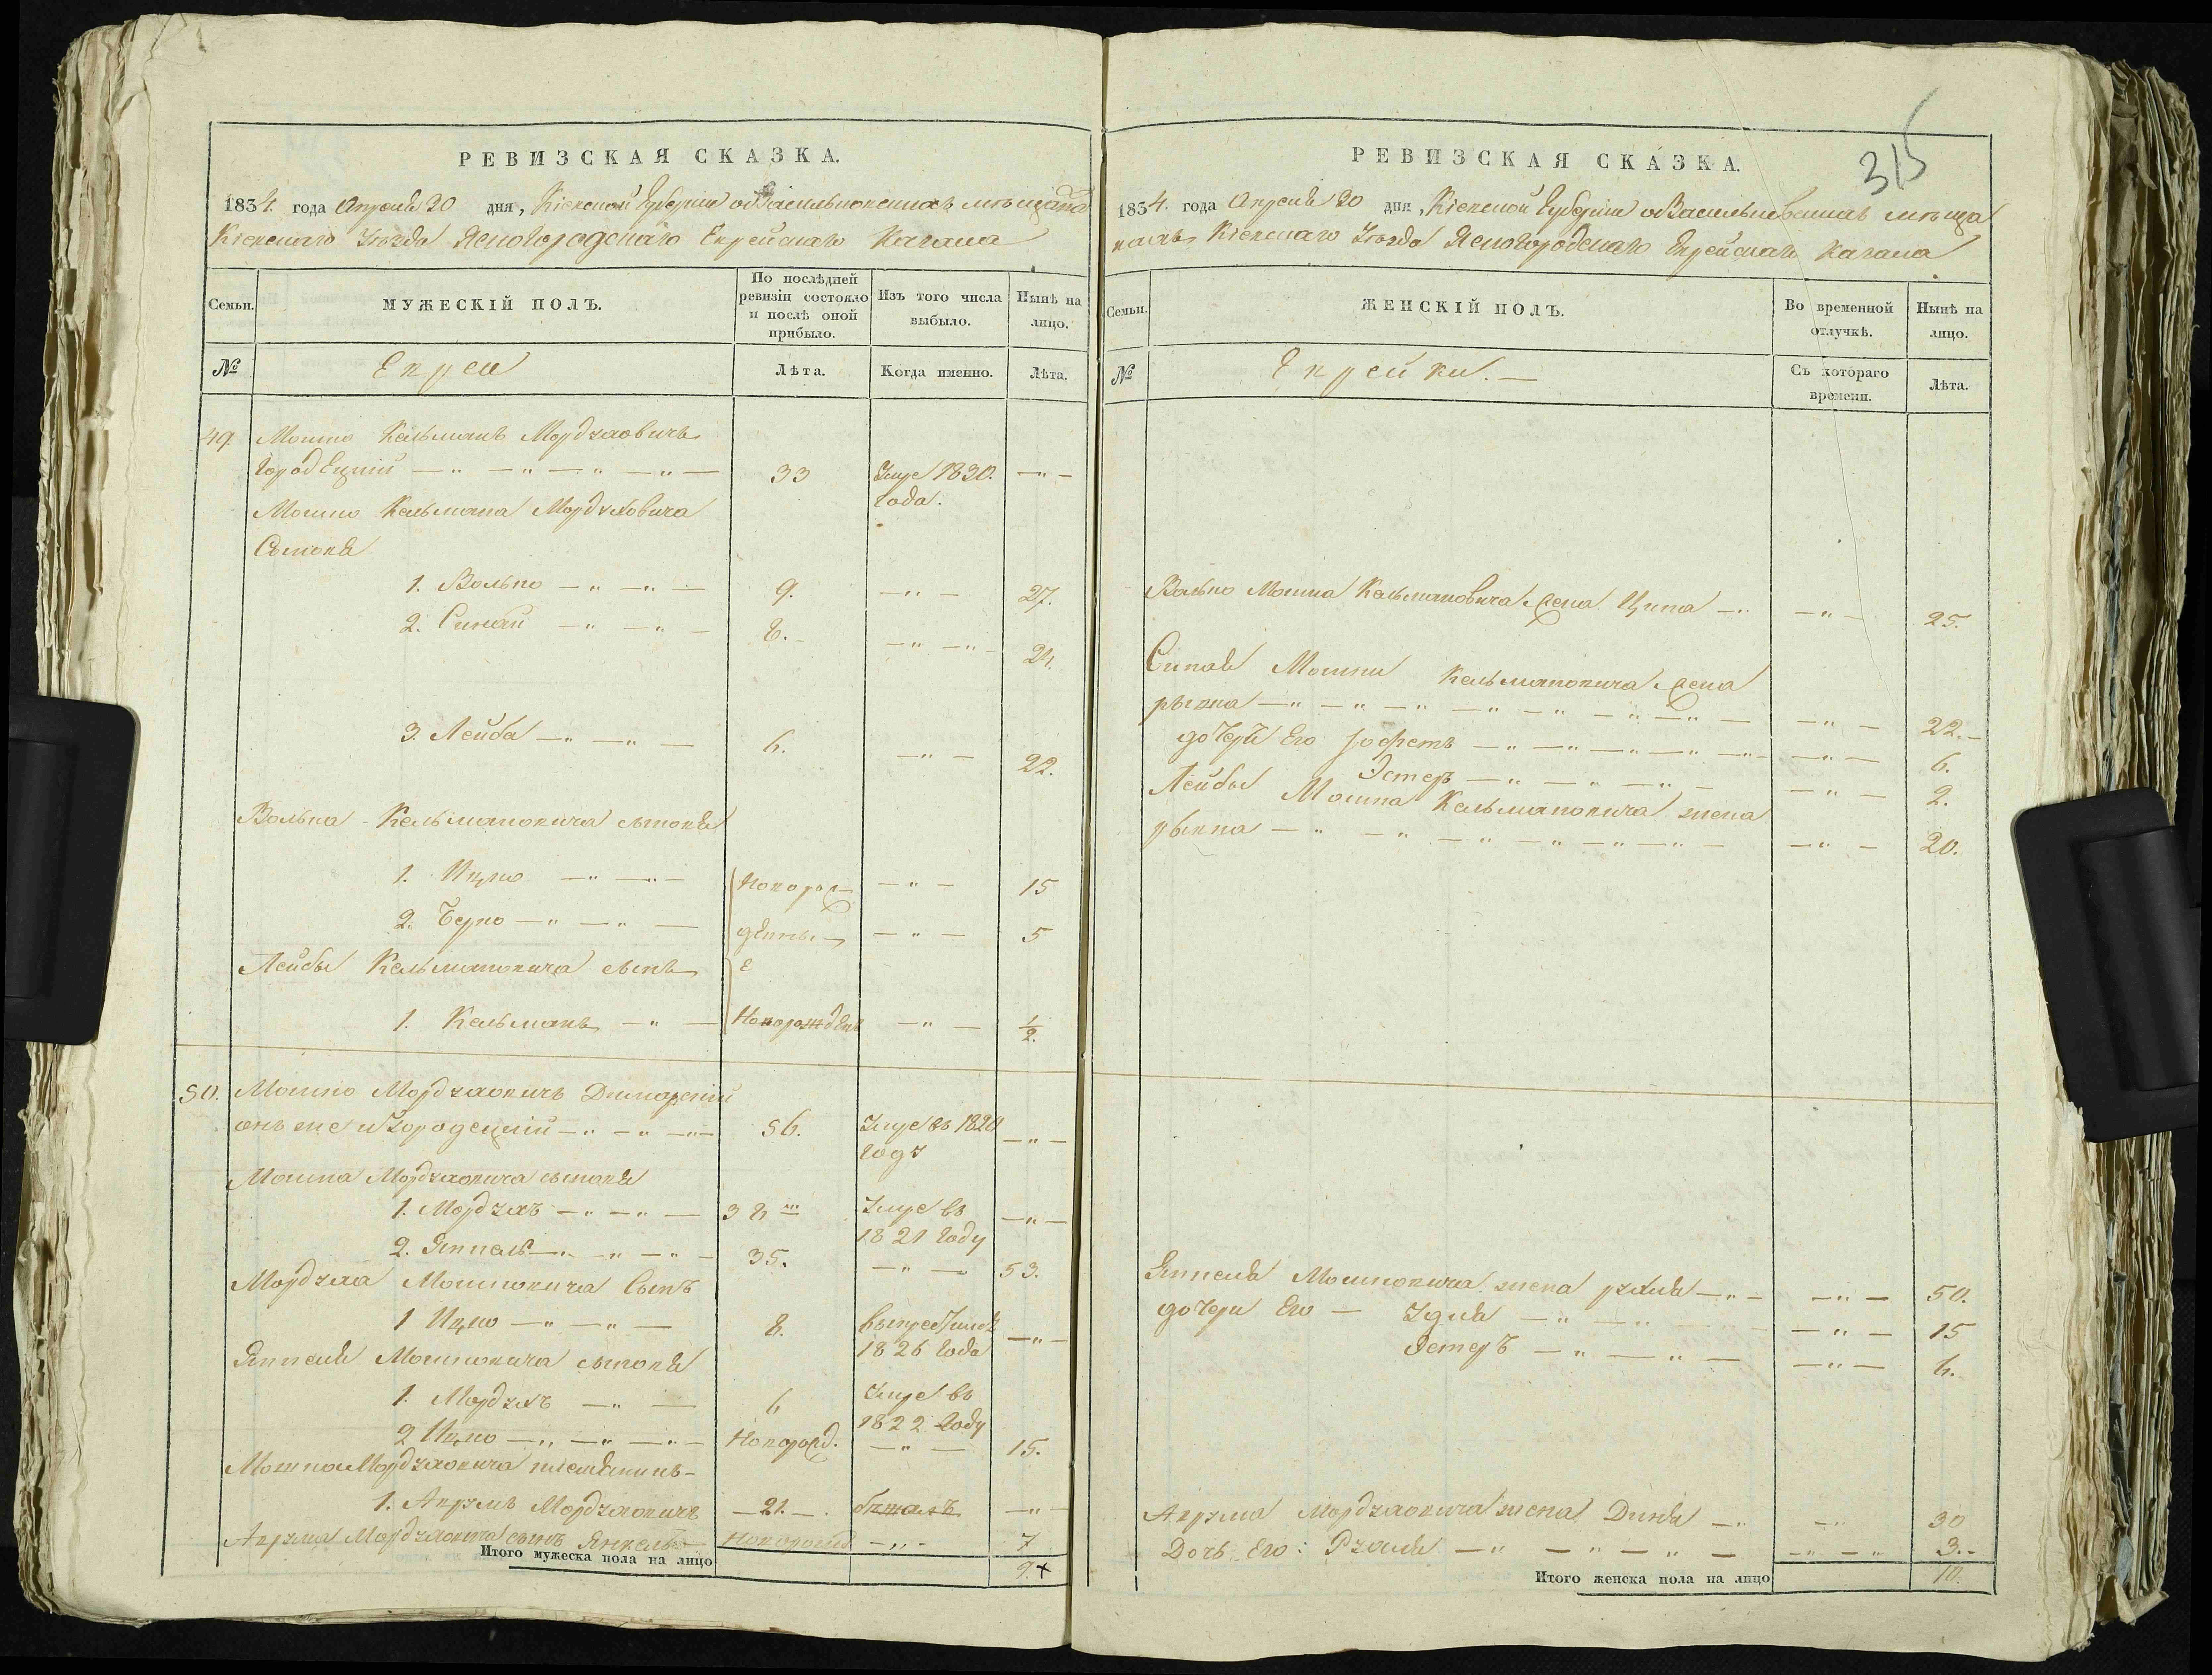 РЕВИЗСКАЯ СКАЗКА.
1834. года Апреля 20 дня, Кіевской Губерніи о Васильковскихъ мѣщанахъ
Кіевскаго Уѣзда Ясногородскаго Еврейскаго Кагала
Семьи. МУЖЕСКІЙ ПОЛЪ. По послѣдней ревизіи состояло и послѣ оной прибыло. Изъ того числа выбыло. Нынѣ на лицо.
№ Евреи Лѣта. Когда именно. Лѣта.
49. Мошко Кельманъ Мордуховичъ
Городецкій 33 Умре 1830. года.
Мошко Кельмана Мордуховича
Сыновя
1. Волько 9. 27.
2. Синай 8. 24.
3. Лейба 6. 22.
Волька Кельмановича сыновя
1. Ицко Новорож 15
2. Берко денны 5
Лейбы Кельмановича сынъ е
1. Кельманъ Новорожденъ 1/2.
50. Мошко Мордуховичъ
онъ же и Городецкій 56. Умре въ 1820 году
Мошка Мордуховича сыновя
1. Мордухъ 38 Умре въ 1821 году
2. Янкель 35. 53.
Мордуха Мошковича Сынъ
1 Ицко 8. 1826 года
Янкеля Мошковича сыновя
1. Мордухъ 6 Умре въ 1822 году
2 Ицко Новорожд. 15.
Мошка Мордуховича племянникъ
1. Аврумъ Мордуховичъ 21. бѣжалъ
Аврума Мордуховича сынъ Янкель Новорожд 7
Итого мужеска пола на лицо 9.
РЕВИЗСКАЯ СКАЗКА.
315
1834. года Апреля 20 дня, Кіевской Губерніи о Васильковскихъ мѣща
нахъ Кіевскаго Уѣзда Ясногородскаго Еврейскаго Кагала
Семьи. ЖЕНСКІЙ ПОЛЪ. Во временной отлучкѣ. Нынѣ на лицо.
№ Еврейки. Съ котораго времени. Лѣта.
Волько Мошка Кельмановича жена Ципа 25.
Синая Мошки Кельмановича жена
рывка 22.
дочери Его 6.
Эстеръ 2.
Лейбы Мошка Кельмановича жена
рывка 20.
Янкеля Мошковича жена рухля 50.
дочери Его Удля 15
Эстеръ 6.
Аврума Мордуховича жена Диня 30
Дочь Его: Рухля 3.
Итого женска пола на лицо 10.